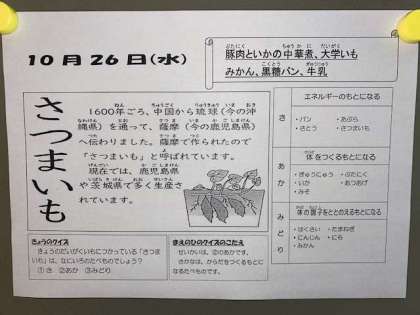 10月26日(水)
豚肉といかの中華煮、大学いも
みかん、黒糖パン、牛乳
さつまいも
1600年ごろ、中国から琉球(今の沖
縄県)を通って、薩摩(今の鹿児島県)
へ伝わりました。薩摩で作られたので
「さつまいも」と呼ばれています。
現在では、鹿児島県
や茨城県で多く生産さ
れています。
きょうのクイズ
きょうのだいがくいもにつかっている「さつま
いも」は、なにいろのたべものでしょう?
①き ②あか ③みどり
まえのひのクイズのこたえ
せいかいは、②のあかです。
さかなは、からだをつくるもとに
なるたべものです。
き
エネルギーのもとになる
・パン ・あぶら
・さとう ・さつまいも
あか
体をつくるもとになる
・ぎゅうにゅう ・ぶたにく
・いか ・あつあげ
・みそ
みどり
体の調子をととのえるもとになる
・はくさい ・たまねぎ
・にんじん ・にら
・みかん